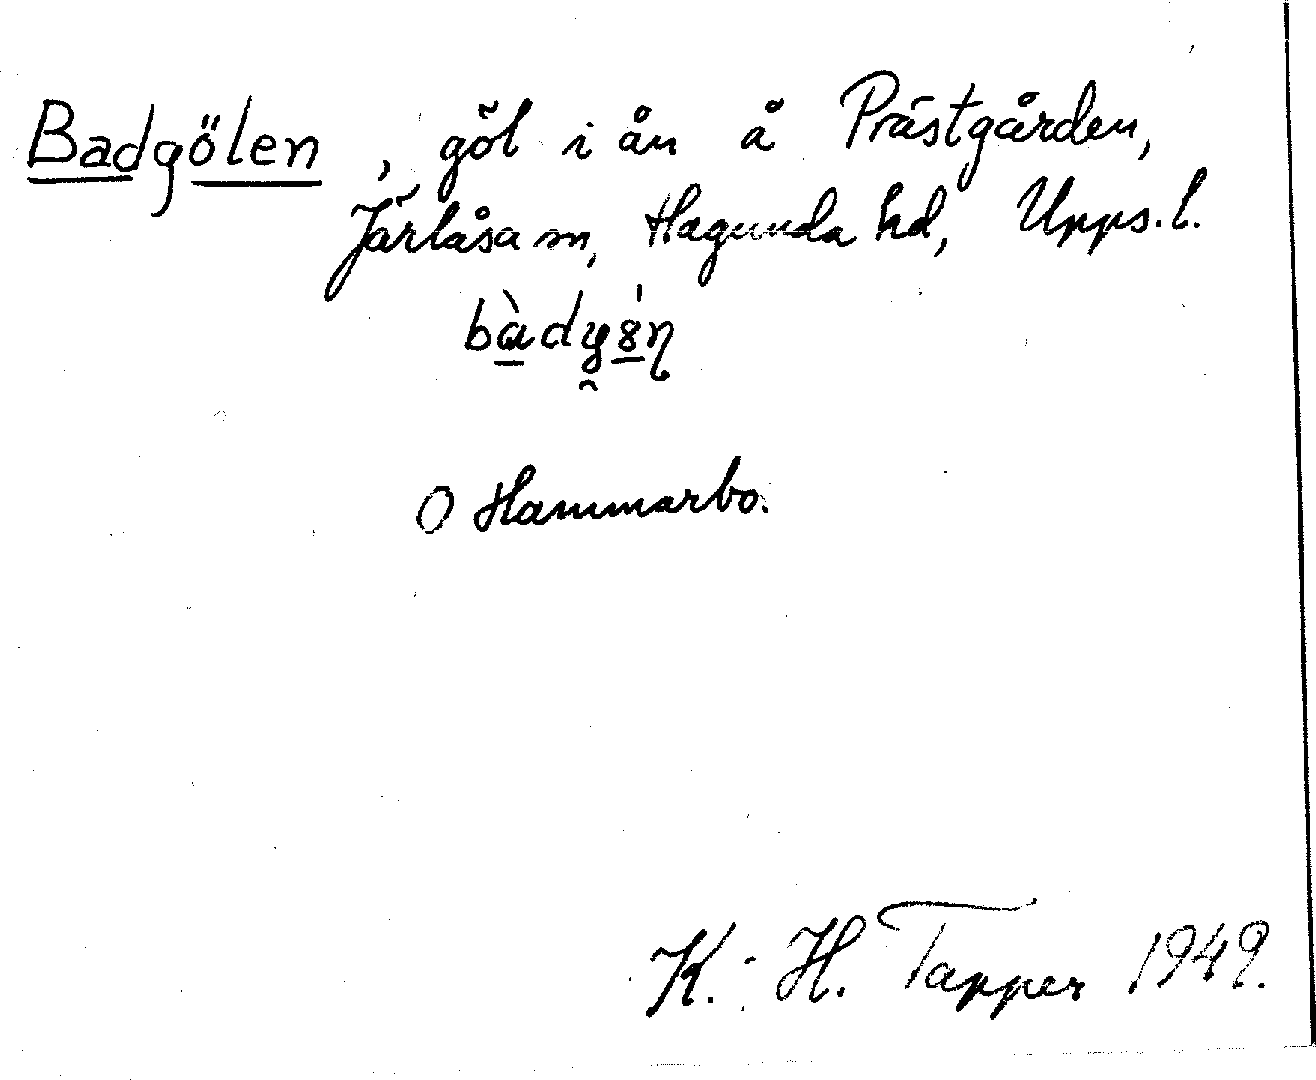 Badgölen, göl i ån å Prästgården,
Järlåsa sn, Hagunda hd, Upps. l.
bàdyȣ́n
O Hammarbo.
K.-H. Tapper 1949.